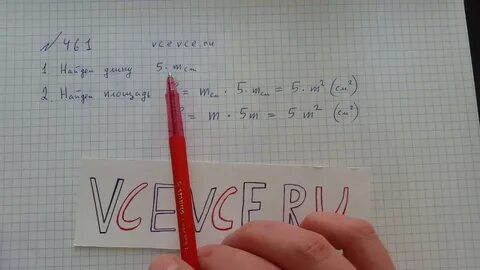 № 461 vcevce.ru
1. Найдем длину 5 · m см
2. Найдем площадь = m см · 5 · m см = 5 · m² (см²)
= m · 5m = 5 m² (см²)
VCEVCE.RU